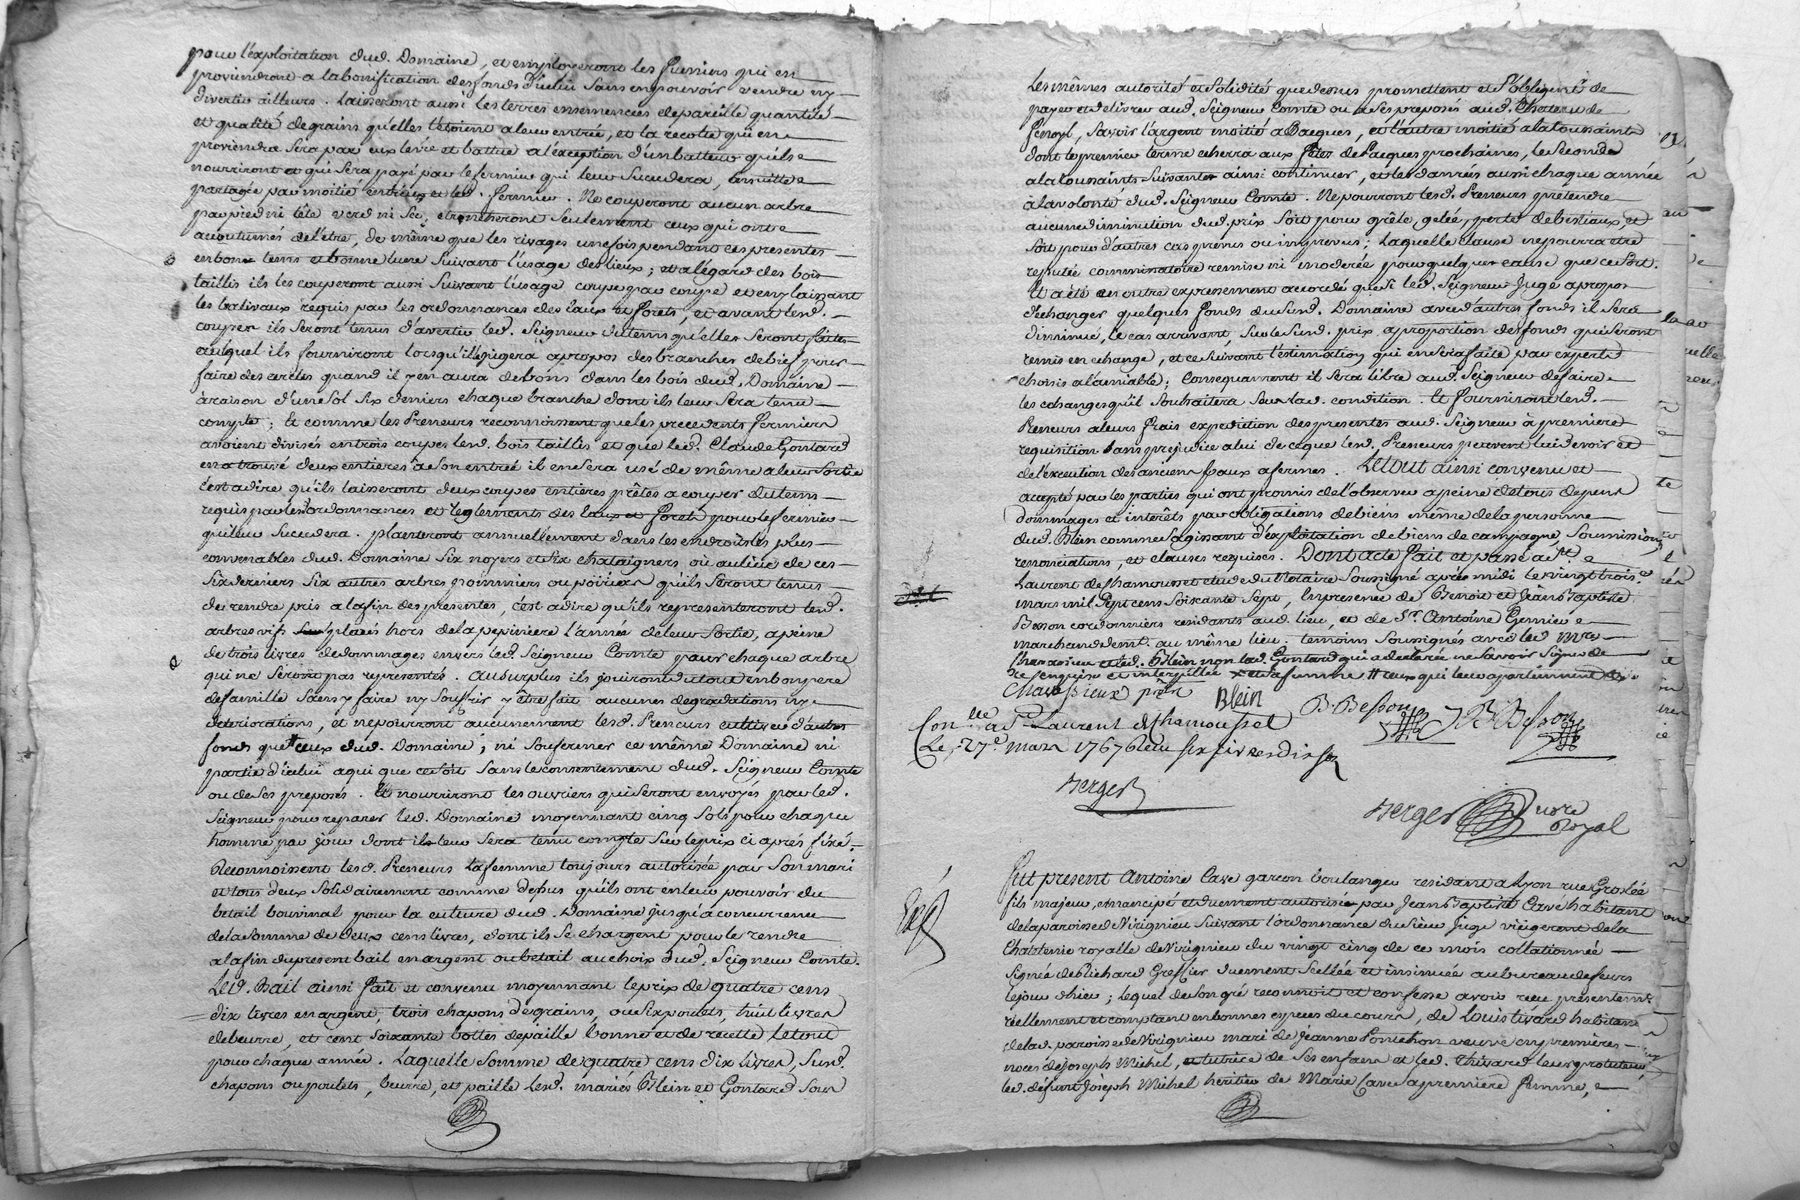 pour l'exploitation dud. Domaine, et employeront les fumiers qui en
proviendront a la bonification des fonds d'icelui sans en pouvoir vendre ny
divertir ailleurs. Laisseront aussi les terres ensemencées de pareille quantité
et qualité de grains qu'elles l'étoient a leur entrée, et la recolte qui en
proviendra sera par eux levée et battue a l'éxception d'un batteur qu'ils
nourriront et qui sera payé par le fermier qui leur succedera, ensuitte
partagée par moitié entr'eux et led. fermier. Ne couperont aucun arbre
par pied ni tête verd ni sec, ebrancheront seulement ceux qui ont
accoutumés de l'être, de même que les rivages une fois pendant ces presentes
en bon tems et bonne lune suivant l'usage des lieux; et a l'égard des bois
taillis ils les couperont aussi suivant l'usage coupe par coupe et en y laissant
les balivaux requis par les ordonnances des Eaux et forets, et avant lesd.
coupes ils seront tenus d'avertir led. Seigneur du tems qu'elles seront faites
auquel ils fourniront lorsqu'il jugera a propos des branches de bief pour
faire des cercles quand il y en aura de bons dans les bois dud. Domaine
à raison d'une sol six deniers chaque branche dont ils leur sera tenu
compte; Et comme les Preneurs reconnoissent que les precedents fermiers
avoient divisés en trois coupes lesd. bois taillis et que led. Claude Gontard
en a trouvé deux entieres a son entrée il en sera usé de même a leur sortie
c'est a dire qu'ils laisseront deux coupes entieres prêtes a couper du tems
requis par les ordonnances et reglements des Eaux et forets pour le fermier
qui leur succedera. planteront annuellement dans les endroits les plus
convenables dud. Domaine six noyers et six chataigners ou au lieu de ces
six derniers six autres arbres pommiers ou poiriers qu'ils seront tenus
de rendre pris a la fin des presentes, c'est a dire qu'ils representeront lesd.
arbres vifs placés hors de la pepiniere l'année de leur sortie, a peine
de trois livres de dommages envers led. Seigneur Comte pour chaque arbre
qui ne seront pas representés. Au surplus ils jouiront du tout en bon pere
de famille sans y faire ny soufrir y être fait aucunes degradations ny
deteriorations, et ne pourront aucunement lesd. Preneurs cultiver d'autres
fonds que ceux dud. Domaine; ni sousfermer ce même Domaine ni
partie d'icelui a qui que ce soit sans le consentement dud. Seigneur Comte
ou de ses preposés. Et nourriront les ouvriers qui seront envoyés par led.
Seigneur pour reparer led. Domaine moyennant cinq sols pour chaque
homme par jour dont ils leur sera tenu compte sur le prix ci aprés fixé.
Reconnoissent lesd. Preneurs la femme toujours autorisée par son mari
et tous deux solidairement comme dessus qu'ils ont en leur pouvoir du
betail bouvinal pour la culture dud. Domaine jusqu'a concurrence
de la somme de deux cens livres, dont ils se chargent pour le rendre
a la fin du present bail en argent ou betail au choix dud. Seigneur Comte.
Led. Bail ainsi fait et convenu moyennant le prix de quatre cens
dix livres en argent, trois chapons de grains, ou six poulets, huit livres
de beurre, et cent soixante bottes de paille bonne et de recette Le tout
pour chaque année. Laquelle somme de quatre cens dix livres, susd.
chapons ou poulets, beurre, et paille lesd. mariés Blein et Gontard sous
Les mêmes autorité et solidité que dessus promettent et s'obligent de
payer et delivrer aud. Seigneur Comte ou a ses preposés aud. Chateau de
, savoir l'argent moitié a Pacques, et l'autre moitié a la toussaints
dont le premier terme echerra aux fêtes de Pacques prochaines, le second
a la toussaints suivante ainsi continuer, et les danrées aussi chaque année
à la volonté dud. Seigneur Comte. Ne pourront lesd. Preneurs prétendre
aucune diminution dud. prix soit pour grêle, gelée, perte de bestiaux, et
soit pour d'autres cas prevus ou imprevus; laquelle clause ne pourra etre
reputée comminatoire remise ni moderée pour quelque cause que ce soit.
Et a été en outre expressement accordé que si led. Seigneur juge a propos
d'echanger quelques fonds du susd. Domaine avec d'autres fonds il sera
diminué, le cas arrivant, sur le susd. prix a proportion des fonds qui seront
remis en echange, et ce suivant l'estimation qui en sera faite par experts
choisis a l'amiable; Consequamment il sera libre aud. Seigneur de faire
les echanges qu'il souhaitera sous lad. condition. Et fourniront lesd.
Preneurs a leurs frais expedition des presentes aud. Seigneur à premiere
requisition sans prejudice a lui de ce que lesd. Preneurs peuvent lui devoir et
de l'execution des anciens baux a fermes. Le tout ainsi convenu et
accepté par les parties qui ont promis de l'observer a peine de tous depens
dommages et interêts par obligations de biens même de la personne
dud. Blein comme agissant d'exploitation de biens de campagne, soumissions
renonciations, et clauses requises. Dont acte fait et passé a St.
Laurent de Chamousset etude du Notaire soussigné aprés midi le vingt trois.e
mars mil sept cens soixante sept, En presence de Benoit et Jean Baptiste
Besson cordonniers residants aud. lieu, et de Sr. Antoine
marchand demt. au même lieu. temoins soussignés avec led. Mre
et led. Blein non lad. Gontard qui a declarée ne savoir signer de
ce enquise et interpellée
Blein
B. Besson J B. Besson
Con.lle a St Laurent de Chamousset
Le 27e mars 1767 Recu six livres dix s.
Berger
Berger nore Royal
Fut present Antoine Cave garcon boulanger residant a Lyon rue Grolée
fils majeur, emancipé et duement autorisé par Jean Baptiste Cave habitant
de la paroisse de Virignieu suivant l'ordonnance du sieur juge viegerent de la
Chatelenie royalle de Virignieu du vingt cinq de ce mois collationnée
signée de Richard Greffier duement scellée et insinuée au bureau de feurs
le jour d'hier; lequel de son gré reconnoit et confesse avoir recu presentement
réellement et comptant en bonnes especes du cours, de Louis tivard habitant
de lad. paroisse de Virignieu mari de Jeanne Ponchon veuve en premieres
noces de Joseph Michel, et tutrice de ses enfans et led. Thivard leur protuteur
led. défunt Joseph Michel heritier de Marie Cave sa premiere femme,